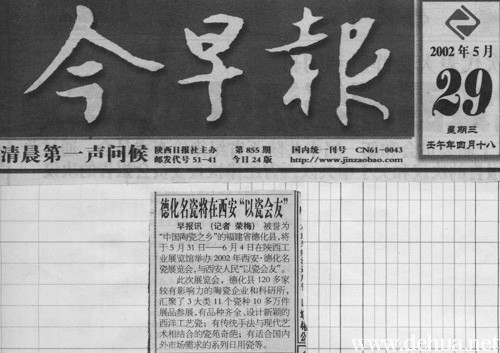 今早報
2002年5月
29
星期三
壬午年四月十八
清晨第一声问候
陕西日报社主办
邮发代号51-41
第855期
今日24版
国内统一刊号 CN61-0043
http://www.jinzaobao.com
德化名瓷将在西安“以瓷会友”
早报讯 (记者 荣梅) 被誉为
“中国陶瓷之乡”的福建省德化县,将
于5月31日——6月4日在陕西工
业展览馆举办2002年西安·德化名
瓷展览会,与西安人民“以瓷会友”。
此次展览会,德化县120多家
较有影响力的陶瓷企业和科研所,
汇聚了3大类11个瓷种10多万件
展品参展,有品种齐全、设计新颖的
西洋工艺瓷;有传统手法与现代艺
术相结合的瓷苑奇葩;有适合国内
外市场需求的系列日用瓷等。
www.dehua.net